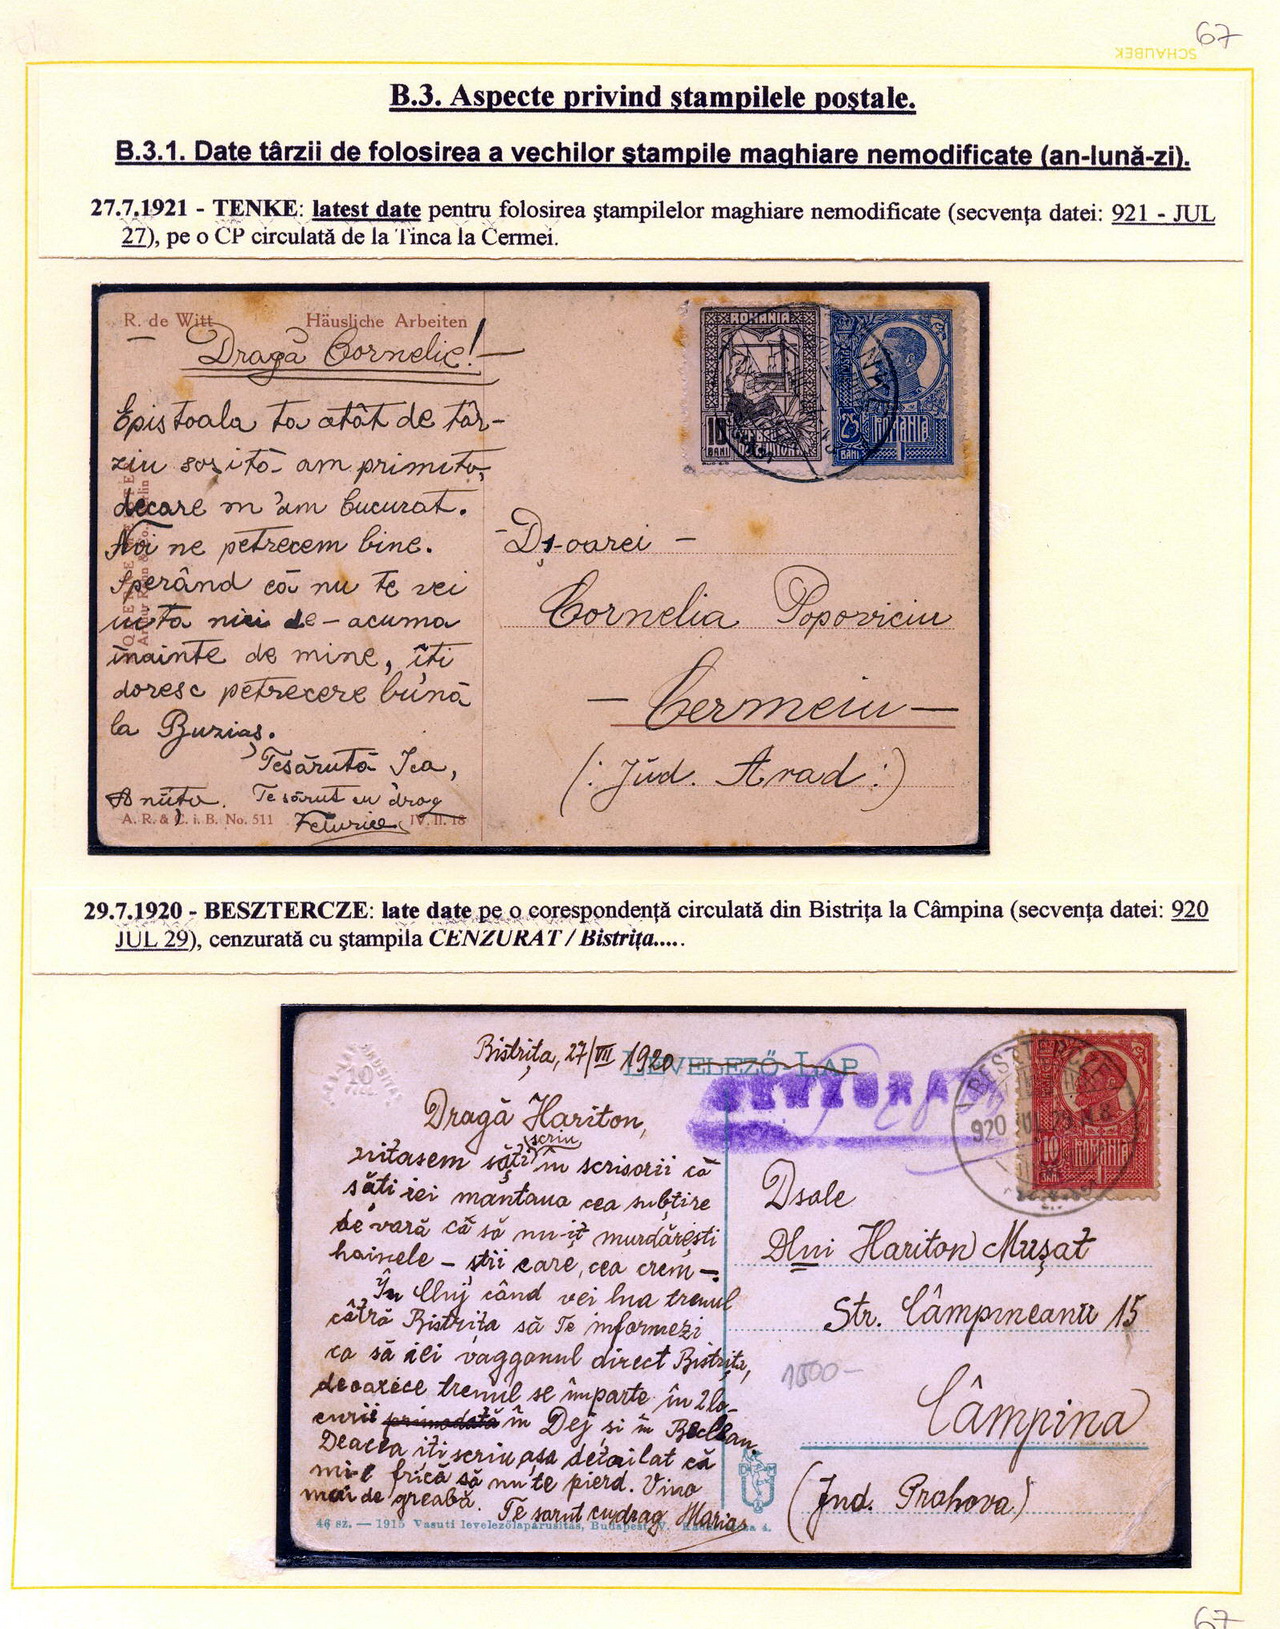 67
SCHAUBEK
B.3. Aspecte privind ştampilele poştale.
B.3.1. Date târzii de folosirea a vechilor ştampile maghiare nemodificate (an-lună-zi).
27.7.1921 - TENKE: latest date pentru folosirea ştampilelor maghiare nemodificate (secvenţa datei: 921 - JUL
27), pe o CP circulată de la Tinca la Cermei.
R. de Witt Häusliche Arbeiten
Dragă Cornelie!
Epistoala ta atât de târ-
ziu sosită am primito,
decare m'am bucurat.
Noi ne petrecem bine.
Sperând că nu te vei
uita nici de-acuma
înainte de mine, îţi
doresc petrecere bună
la Buziaş.
Tesărută Ica,
Anuţa. Te sărut cu drag
A. R. & C. i. B. No. 511 IV. II. 18
ROMANIA
10 BANI
25 BANI ROMANIA
D-şoarei
Cornelia Popoviciu
Cermeiu
(: Jud. Arad :)
29.7.1920 - BESZTERCZE: late date pe o corespondenţă circulată din Bistriţa la Câmpina (secvenţa datei: 920
JUL 29), cenzurată cu ştampila CENZURAT / Bistriţa.....
Bistriţa, 27/VII 1920
LEVELEZŐ-LAP
CENZURAT
BESZTERCZE
920 JUL 29
10 BANI ROMANIA
10
Dragă Hariton,
uitasem săţi scriu în scrisorii că
săţi iei mantaua cea subţire
de vară ca să nu-ţi murdăreşti
hainele – ştii care, cea crem –.
În Cluj când vei lua trenul
cătră Bistriţa să Te informezi
ca să iei vaggonul direct Bistriţa,
deoarece trenul se împarte în 2 lo-
curii în Dej si în Beclean.
Deacea iti scriu aşa detailat că
mi-e frică să nu te pierd. Vino
mai de greabă. Te sarut cu drag
46 sz. — 1915 Vasuti levelezőlapárusitás, Budapest
Dsale
Dlui Hariton Muşat
Str. Câmpineanu 15
1500-
Câmpina
(Jud. Prahova)
67